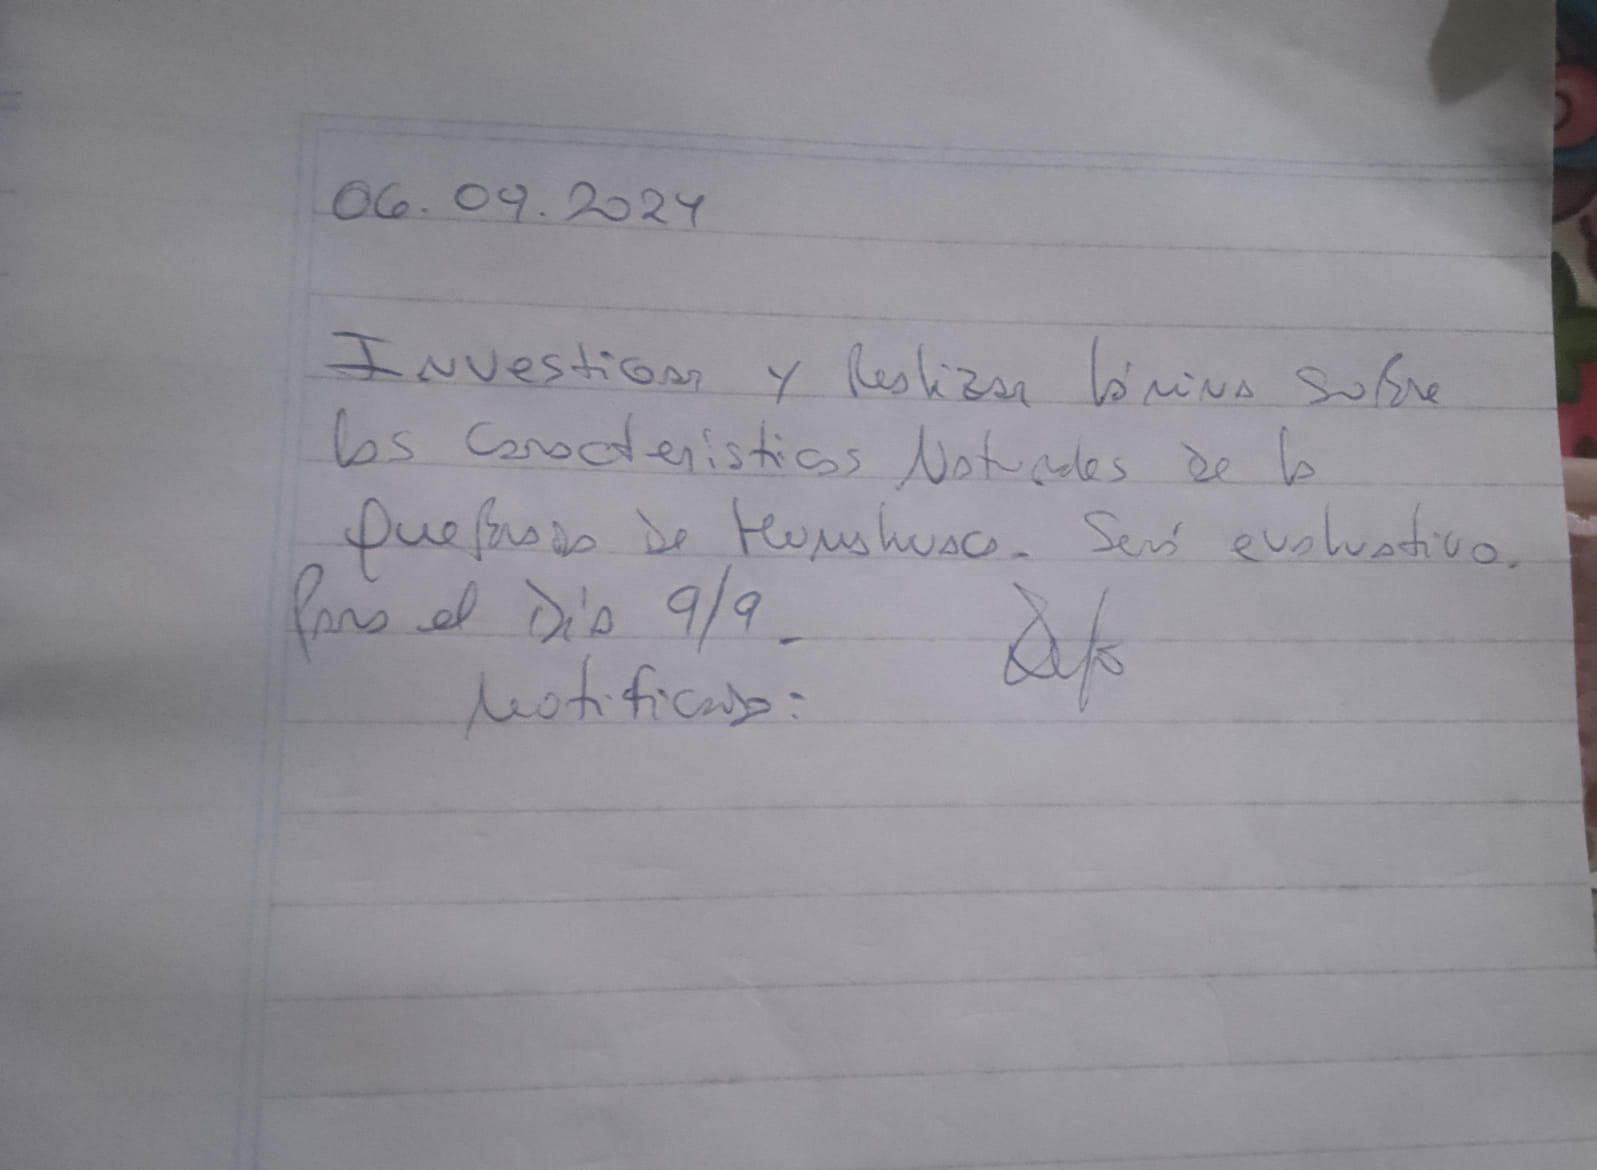 06.09.2024
Investigar y Realizar lámina sobre
las Características Naturales de la
Quebrada de Humahuaca. Será evaluativo.
Para el Día 9/9
Notificado: